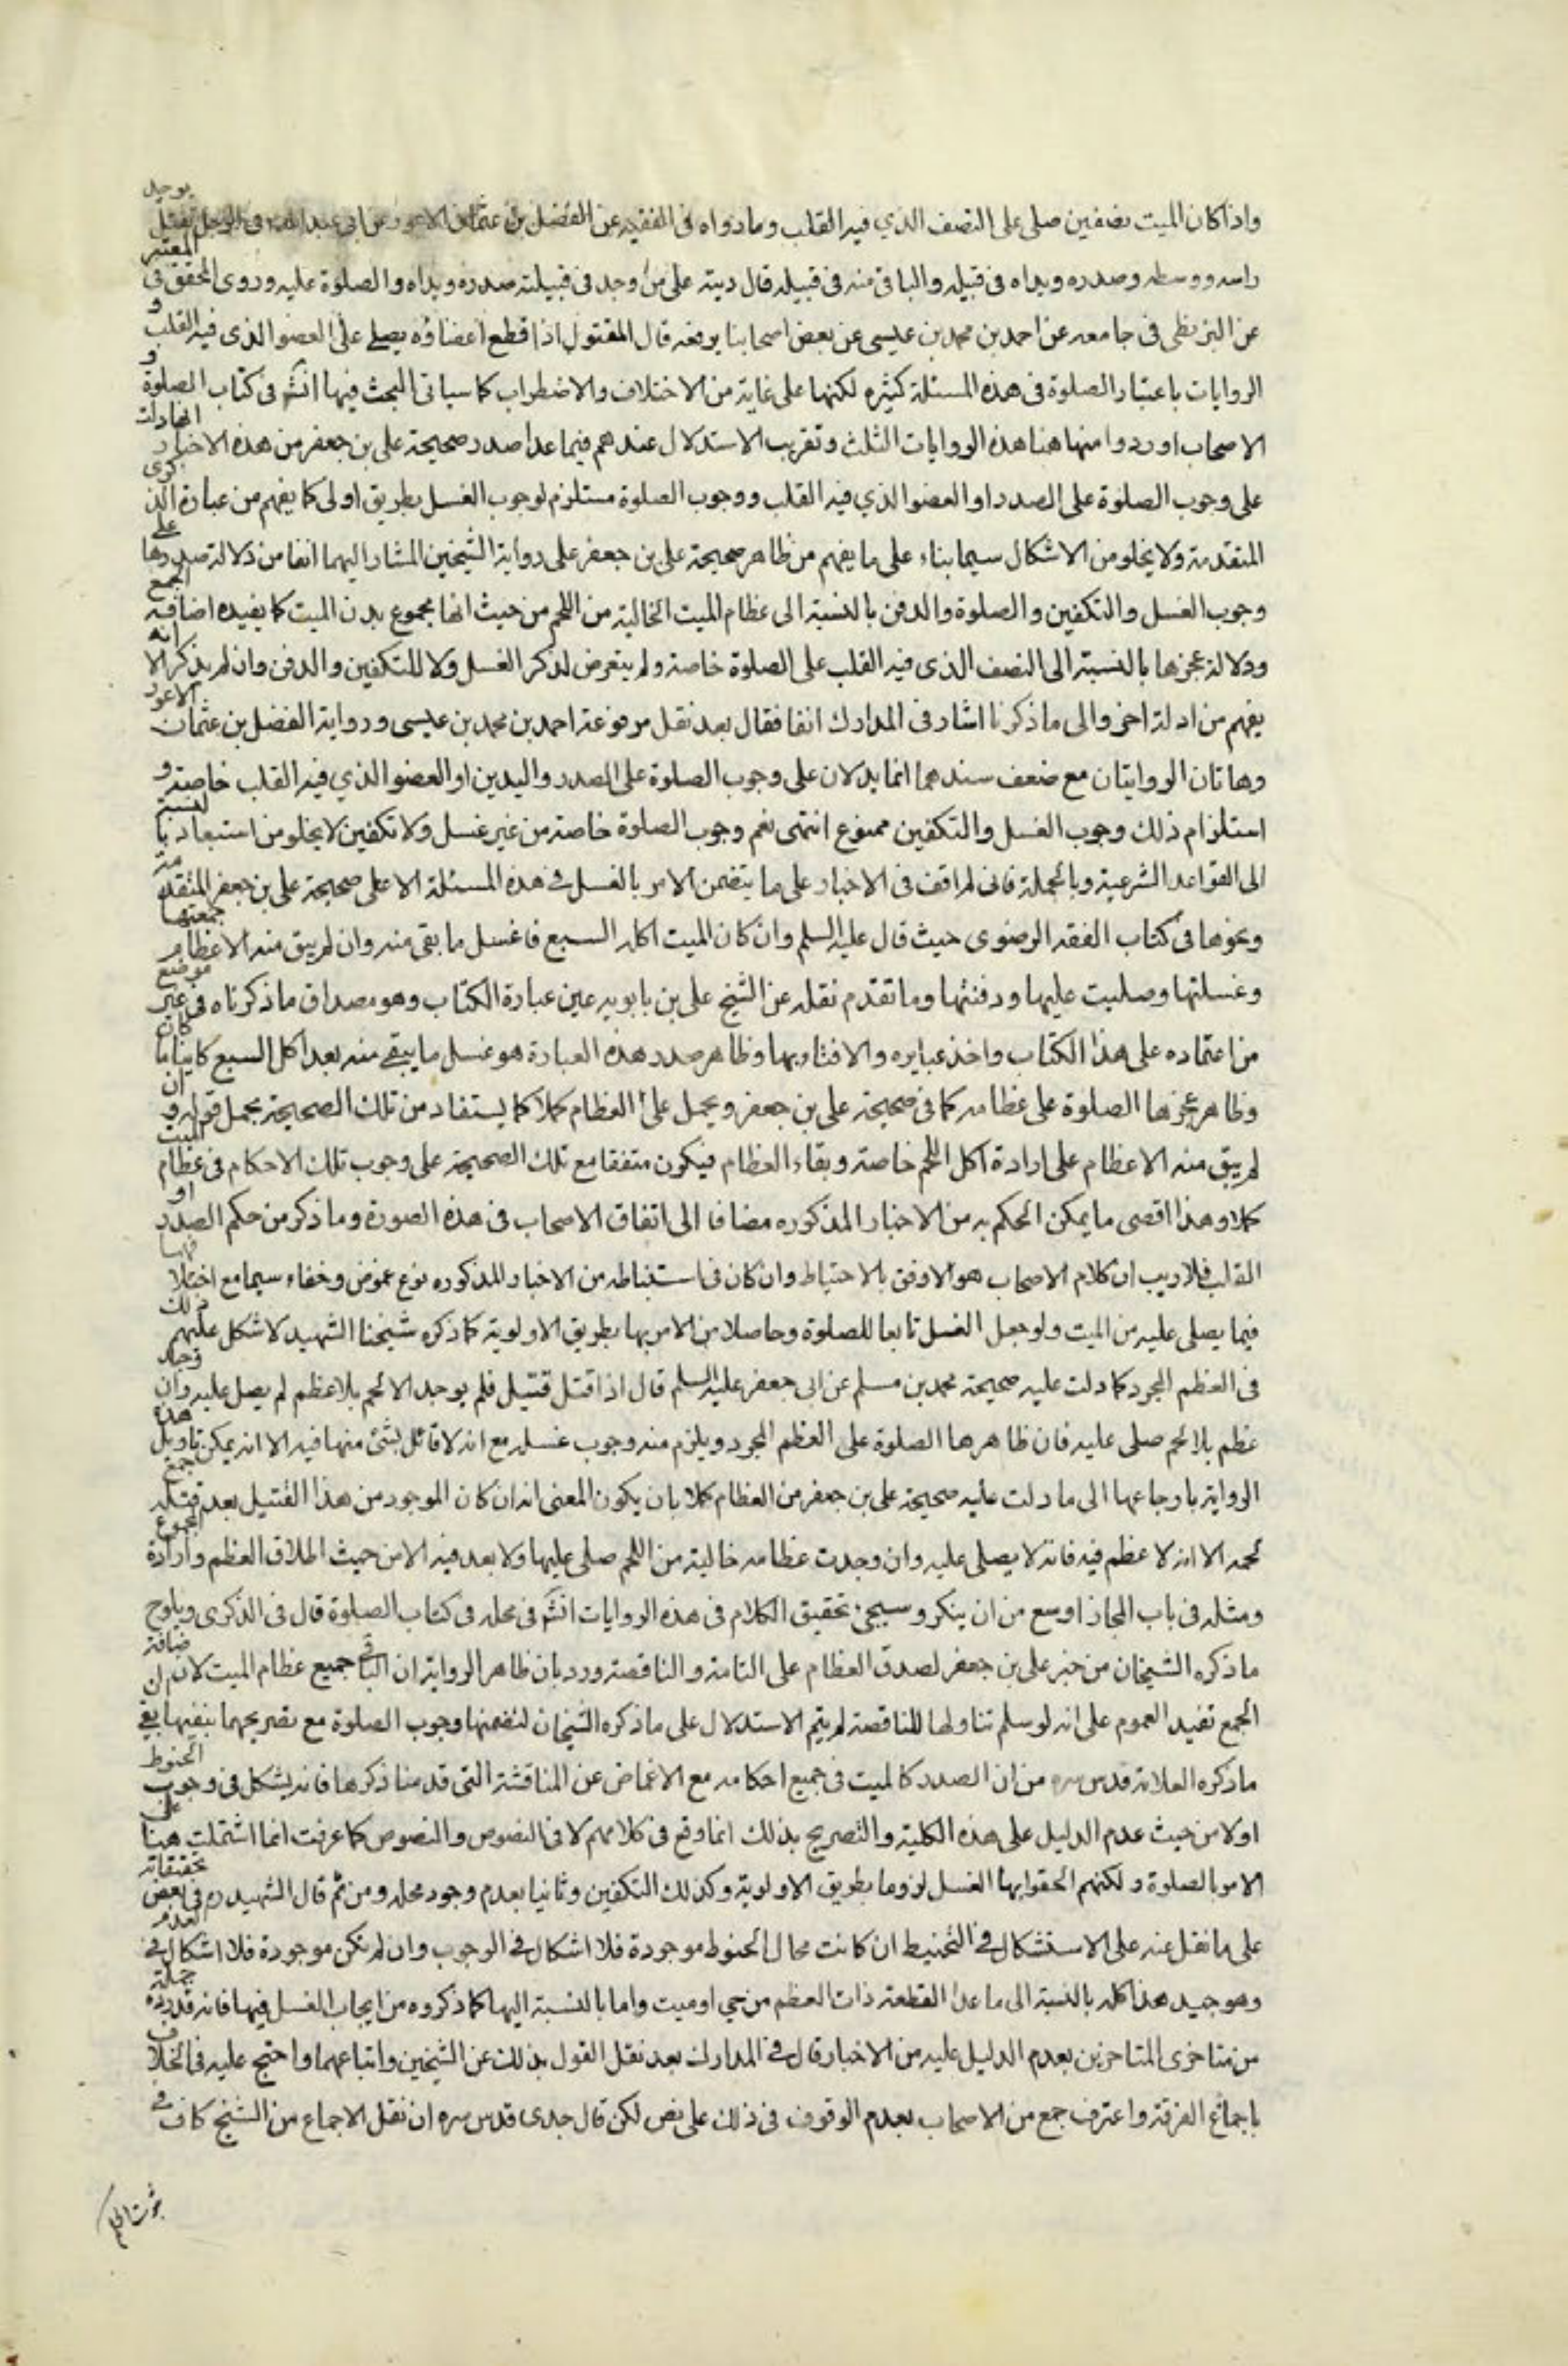 واذا كان الميت نصفين صلى على النصف الذي فيه القلب وما رواه فى الفقيه عن الفضل بن عثمان الاعور عن ابى عبد الله فى الرجل يقتل يوجد
راسه ووسطه وصدره ويداه فى قبيله والباقى منه فى قبيله قال ديته على من وجد فى قبيلته صدره ويداه والصلوة عليه وروى المحقق فى المعتبر
عن البزنطى فى جامعه عن احمد بن محمد بن عيسى عن بعض اصحابنا يرفعه قال المقتول اذا قطع اعضاؤه يصلى على العضو الذى فيه القلب و
الروايات باعتبار الصلوة فى هذه المسئلة كثيره لكنها على غاية من الاختلاف والاضطراب كما سياتى البحث فيها انشَه فى كتاب الصلوة و
الاصحاب اوردوا منها هنا هذه الروايات الثلث وتقريب الاستدلال عندهم فيما عدا صدر صحيحة على بن جعفر من هذه الاخبار انها دلت
على وجوب الصلوة على الصدر او العضو الذي فيه القلب ووجوب الصلوة مستلزم لوجوب الغسل بطريق اولى كما يفهم من عبارة الذكرى
المتقدمة ولا يخلو من الاشكال سيما بناء على ما يفهم من ظاهر صحيحة على بن جعفر على رواية الشيخين المشار اليهما انفا من دلالة صدرها على
وجوب الغسل والتكفين والصلوة والدفن بالنسبة الى عظام الميت الخالية من اللحم من حيث انها مجموع بدن الميت كما يفيده اضافة الجمع
ودلالة عجزها بالنسبة الى النصف الذى فيه القلب على الصلوة خاصة ولم يتعرض لذكر الغسل ولا للتكفين والدفن وان لم يذكر الا انه
يفهم من ادلة اخر والى ما ذكرنا اشار فى المدارك انفا فقال بعد نقل مرفوعة احمد بن محمد بن عيسى ورواية الفضل بن عثمان الاعور
وهاتان الروايتان مع ضعف سندهما انما يدلان على وجوب الصلوة على الصدر واليدين او العضو الذي فيه القلب خاصة و
استلزام ذلك وجوب الغسل والتكفين ممنوع انتهى نعم وجوب الصلوة خاصة من غير غسل ولا تكفين لا يخلو من استبعاد بالنسبة
الى القواعد الشرعية وبالجملة فانى لم اقف فى الاخبار على ما يتضمن الامر بالغسل فى هذه المسئلة الا على صحيحة على بن جعفر المتقدمة
ونحوها فى كتاب الفقه الرضوى حيث قال عليه السلم وان كان الميت اكله السبع فاغسل ما بقى منه وان لم يبق منه الا عظام جمعتها
وغسلتها وصليت عليها ودفنتها وما تقدم نقله عن الشيخ على بن بابويه عين عبارة الكتاب وهو مصداق ما ذكرناه فى غير موضع
من اعتماده على هذا الكتاب واخذ عبايره والافتاء بها وظاهر صدر هذه العبارة هو غسل ما يبقى منه بعد اكل السبع كاينا ما كان
وظاهر عجزها الصلوة على عظامه كما فى صحيحة على بن جعفر ويحمل على العظام كملا كما يستفاد من تلك الصحيحة بحمل قوله وان
لم يبق منه الا عظام على ارادة اكل اللحم خاصة وبقاء العظام فيكون متفقا مع تلك الصحيحة على وجوب تلك الاحكام فى عظام الميت
كملا وهذا اقصى ما يمكن الحكم به من الاخبار المذكوره مضافا الى اتفاق الاصحاب فى هذه الصورة وما ذكر من حكم الصدر او
القلب فلا ريب ان كلام الاصحاب هو الاوفق بالاحتياط وان كان فى استنباطه من الاخبار المذكوره نوع غموض وخفاء سيما مع اختلافها
فيما يصلى عليه من الميت ولو جعل الغسل تابعا للصلوة وحاصلا من الامر بها بطريق الاولوية كما ذكره شيخنا الشهيد لاشكل عليهم ذلك
فى العظم المجرد كما دلت عليه صحيحة محمد بن مسلم عن ابى جعفر عليه السلم قال اذا قتل قتيل فلم يوجد الا لحم بلا عظم لم يصل عليه وان وجد
عظم بلا لحم صلى عليه فان ظاهرها الصلوة على العظم المجرد ويلزم منه وجوب غسله مع انه لا قائل بشئ منها فيه الا انه يمكن تاويل هذه
الرواية بارجاعها الى ما دلت عليه صحيحة على بن جعفر من العظام كملا بان يكون المعنى انه ان كان الموجود من هذا القتيل بعد قتله جمع
لحمه الا انه لا عظم فيه فانه لا يصلى عليه وان وجدت عظامه خالية من اللحم صلى عليها ولا بعد فيه الا من حيث اطلاق العظم وارادة المجموع
ومثله فى باب المجاز اوسع من ان ينكر وسيجئ تحقيق الكلام فى هذه الروايات انشَه فى محله فى كتاب الصلوة قال فى الذكرى ويلوح
ما ذكره الشيخان من خبر على بن جعفر لصدق العظام على التامة والناقصة ورد بان ظاهر الرواية ان الباقى جميع عظام الميت لان اضافة
الجمع تفيد العموم على انه لو سلم تناولها للناقصة لم يتم الاستدلال على ما ذكره الشيخان لتضمنها وجوب الصلوة مع تصريحهما بنفيها بقى
ما ذكره العلامة قدس سره من ان الصدر كالميت فى جميع احكامه مع الاغماض عن المناقشة التى قدمنا ذكرها فانه يشكل فى وجوب الحنوط
اولا من حيث عدم الدليل على هذه الكلية والتصريح بذلك انما وقع فى كلامهم لا فى النصوص والنصوص كما عرفت انما اشتملت هنا على
الامر بالصلوة ولكنهم الحقوا بها الغسل لزوما بطريق الاولوية وكذلك التكفين وثانيا بعدم وجود محله ومن ثم قال الشهيد ره فى بعض تحقيقاته
على ما نقل عنه على الاستشكال فى التحنيط ان كانت محال الحنوط موجودة فلا اشكال فى الوجوب وان لم تكن موجودة فلا اشكال فى العدم
وهو جيد هذا كله بالنسبة الى ما عدا القطعة ذات العظم من حي او ميت واما بالنسبة اليها كما ذكروه من ايجاب الغسل فيها فانه قد رده جملة
من متاخرى المتاخرين بعدم الدليل عليه من الاخبار قال فى المدارك بعد نقل القول بذلك عن الشيخين واتباعهما واحتج عليه فى الخلاف
باجماع الفرقة واعترف جمع من الاصحاب بعدم الوقوف فى ذلك على نص لكن قال جدى قدس سره ان نقل الاجماع من الشيخ كاف فى